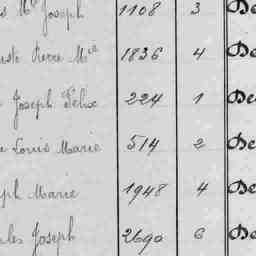 Joseph 1108 3 De
Pierre M^ie 1836 4 De
Joseph Félix 224 1 De
Louis Marie 514 2 De
Marie 1948 4 De
Joseph 2690 6 De